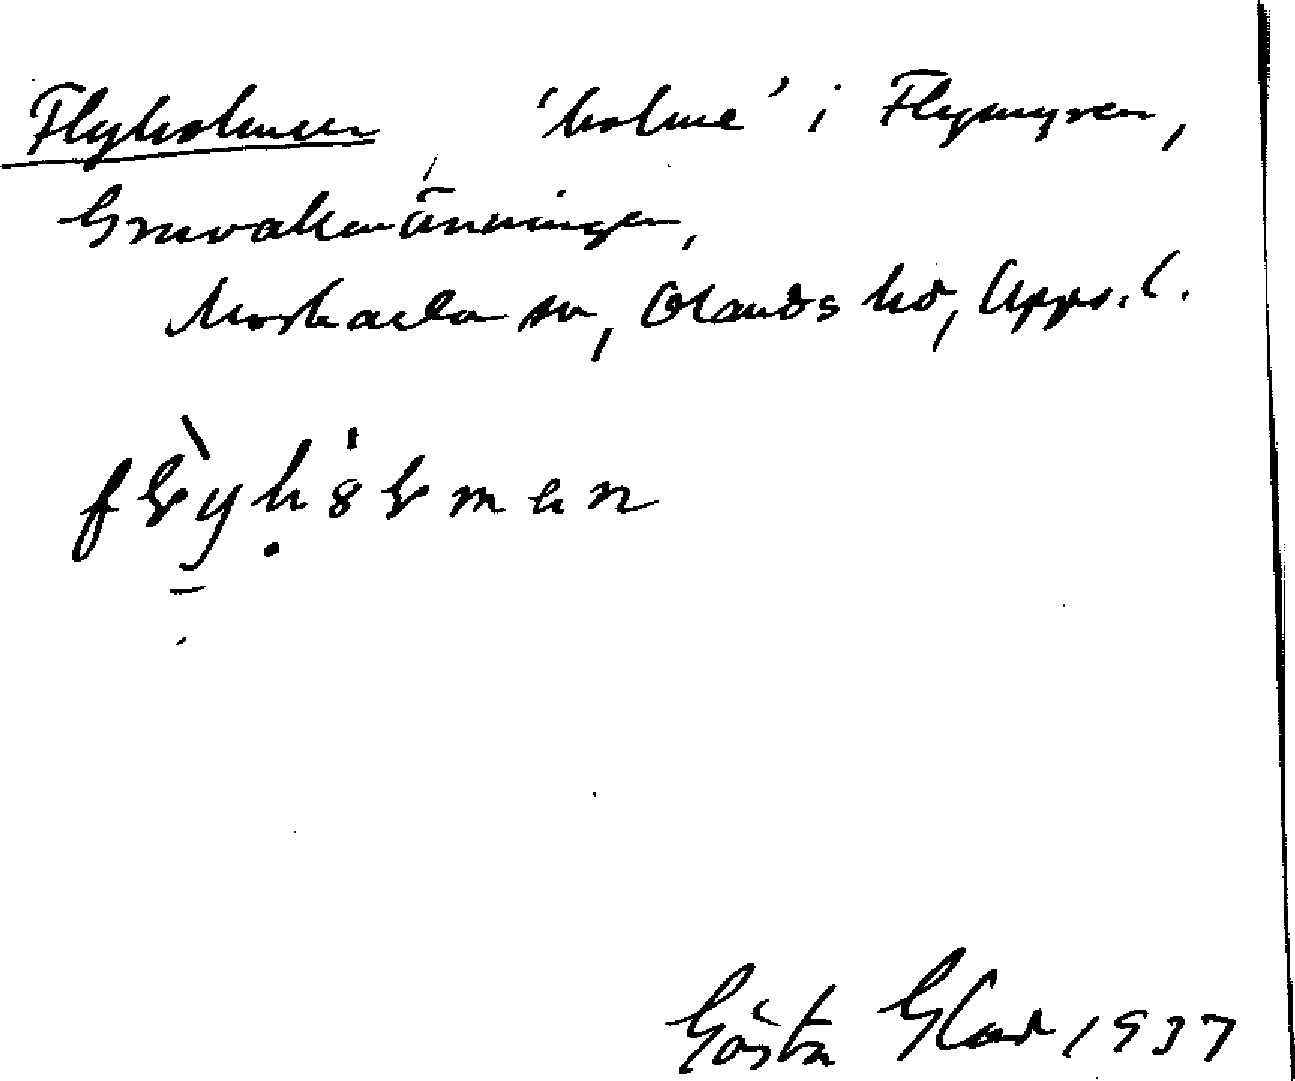 Flyholmen, 'holme' i Flymyren,
Gruvallmänningen,
Morkarla sn, Olands hd, Upps. l.
flỳhȯlmen
Gösta Glad 1937